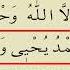 لَّا اللهُ وَحْ
مْدُ يُحْيٖى وَ